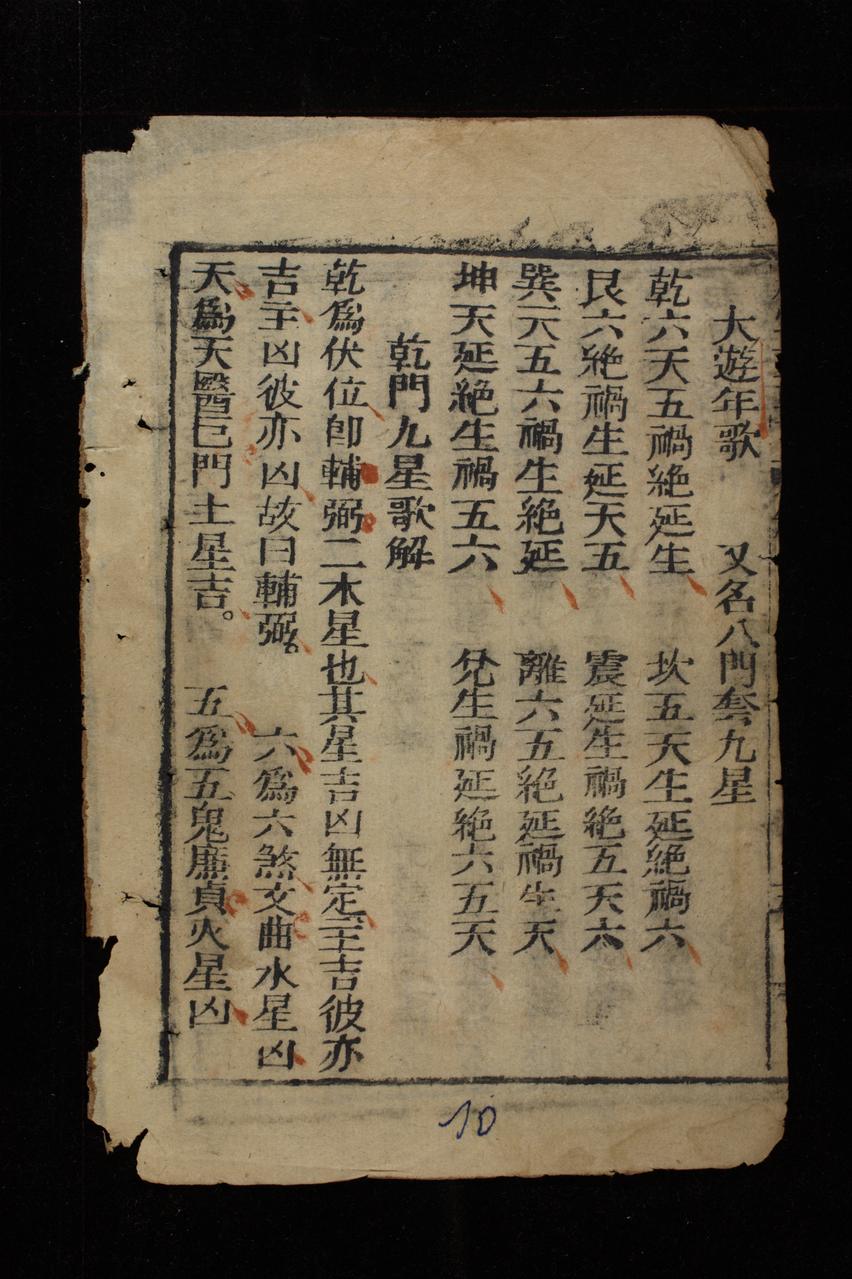 大遊年歌　又名八門套九星
乾六天五禍絶延生　坎五天生延絶禍六
艮六絶禍生延天五　震延生禍絶五天六
巽天五六禍生絶延　離六五絶延禍生天
坤天延絶生禍五六　兌生禍延絶六五天
乾門九星歌解
乾爲伏位卽輔弼二木星也其星吉凶無定主吉彼亦
吉主凶彼亦凶故曰輔弼。　六爲六煞文曲水星凶
天爲天醫巨門土星吉。　五爲五鬼廉貞火星凶
10